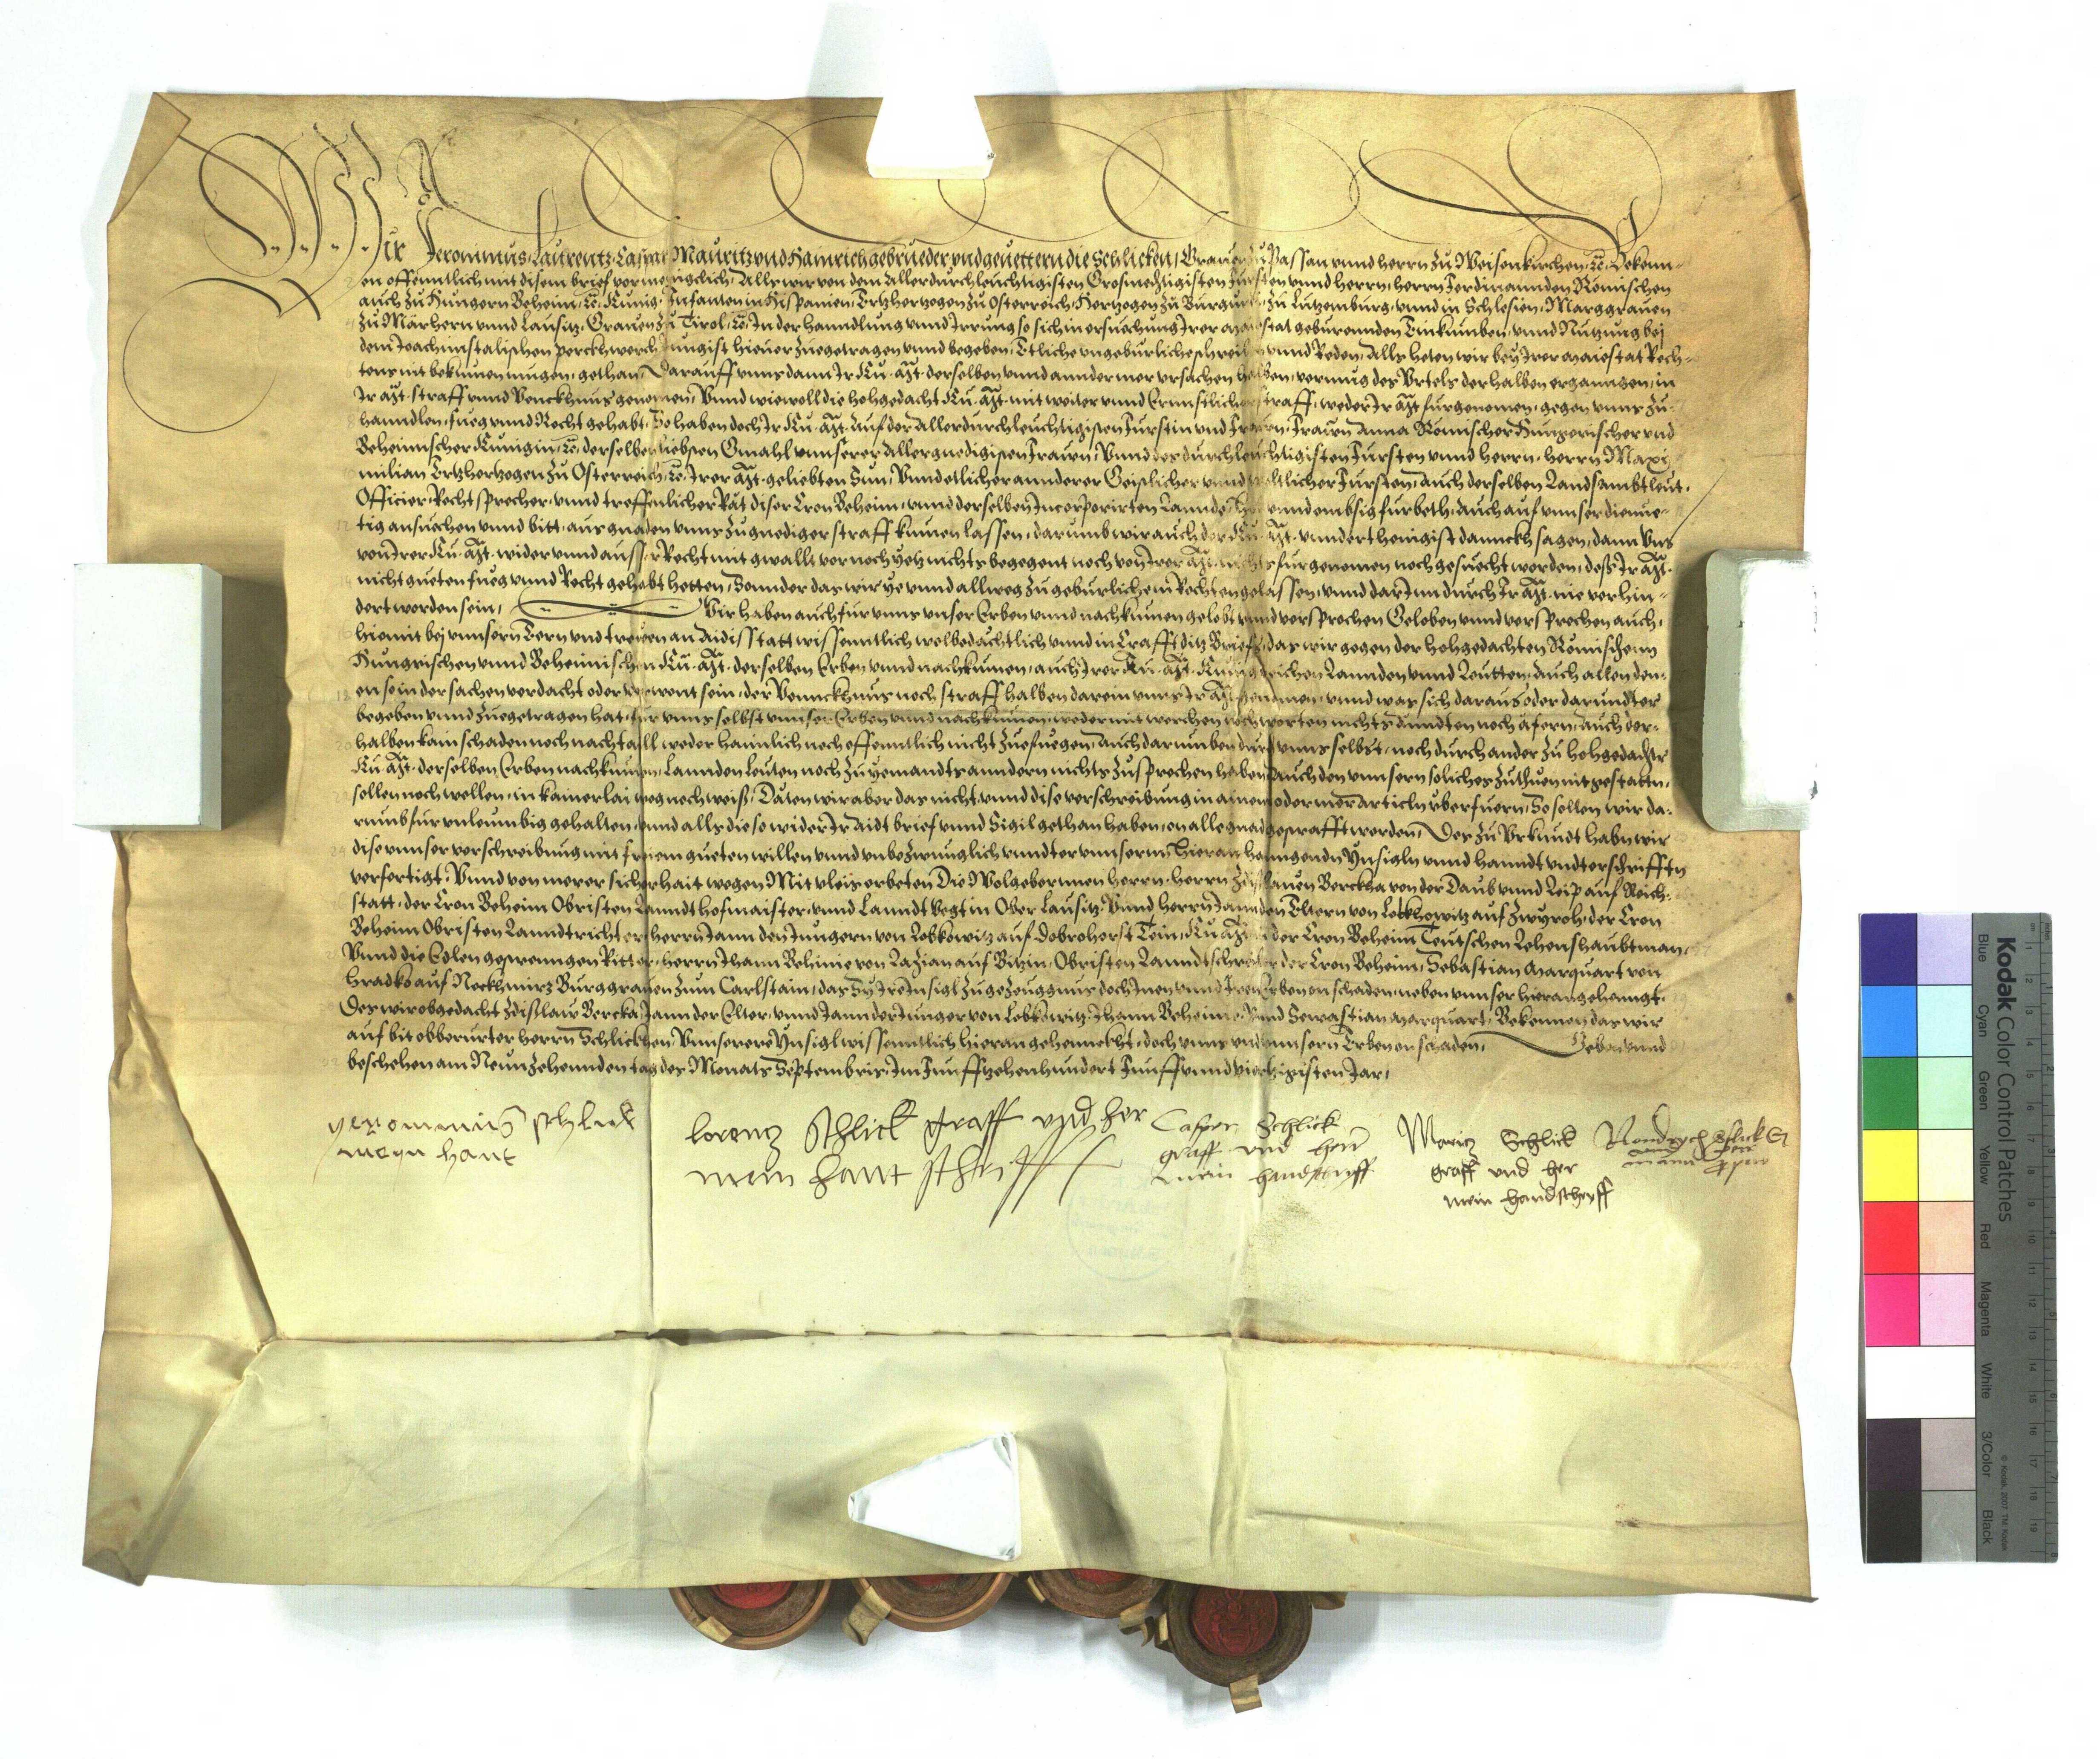 Wir Jeronimus, Laurentz, Caspar, Mauritz vnd Hainrich gebrueder vnd geuettern die Schlicken, Grauen zu Passan vnnd herrn zu Weisenkirchen, ꝛc. Bekenn-
en offenntlich mit disem brief vor menigclich, Alls wir von dem Allerdurchleuchtigisten Grosmechtigisten Fursten vnnd herrn, herrn Ferdinannden Römischen
auch zu Hungern Beheim, ꝛc. Kunig, Infanten in Hispanien, Ertzhertzogen zu Osterreich, Hertzogen zu Burgundi, zu Lutzemburg, vnnd in Schlesien, Marggrauen
zu Märhern vnnd Lausitz, Grauen zu Tirol, ꝛc. In der hanndlung vnnd Irrung so sich in ersuechung Irer maiestat geburennden Einkumben, vnnd Nutzung bej
dem Joachimstalischen perckhwerch Jungist hieuor zuegetragen vnnd begeben, Etliche vngeburliche schreiben vnnd Reden, Alls heten wir bey Irer maiestat Rech-
tens nit bekumen mugen, gethan, Darauff vnns dann Ir Ku. Mt. derselben vnnd annder mer vrsachen halben, vermug des Vrtels derhalben erganngen, in
Ir Mt. straff vnnd Vencknus genomen, Vnnd wiewoll die hohgedacht Ku. Mt. mit weiter vnnd Ernnstlicher straff, weder Ir Mt. furgenomen, gegen vnns zu-
hanndlen, fueg vnnd Recht gehabt, So haben doch Ir Ku. Mt. auf der Allerdurchleuchtigisten Furstin vnd Frauen, Frauen Anna Römischer Hungerischer vnd
Behemischer Kunigin, ꝛc. derselben liebsten Gmahl vnnserer Allergnedigisten Frauen, Vnnd des durchleuchtigisten Fursten vnnd herrn, herrn Maxi-
milian Ertzhertzogen zu Osterreich, ꝛc. Irer Mt. geliebten Sun, Vnnd etlicher annderer Geistlicher vnnd weltlicher Fursten, auch derselben Landsambtleut,
Officier, Rechtsprecher, vnnd treffenlicher Rät diser Cron Beheim, vnnd derselben Incorporirten Lannde, vnnd embsig furbeth, auch auf vnnser diemue-
tig ansuechen vnnd bitt, aus gnaden vnns zu gnediger straff kumen lassen, darumb wir auch der Ku. Mt. vnnderthenigist dannckh sagen, dann vns
von Irer Ku. Mt. wider vnnd ausser Recht mit gwallt vor noch yetz nichts begegent noch von Irer Mt. nichts furgenomen noch gesuecht worden, dess Ir Mt.
nicht gueten fueg vnnd Recht gehabt hetten, Sonnder das wir ye vnnd allweg zu geburlichem Rechten gelassen, vnnd darInn durch Ir Mt. nie verhin-
dert worden sein, Wir haben auch fur vnns vnser Erben vnnd nachkumen gelobt vnnd versprochen Geloben vnnd versprechen auch,
hiemit bej vnnsern Eern vnd treuen an Aidisstatt wissenntlich wolbedächtlich vnnd in Crafft ditz Briefs, das wir gegen der hohgedachten Römischenn
Hungrischen vnnd Behemischen Ku. Mt. derselben Erben vnnd nachkumen, auch Irer Ku. Mt. Kunigreichen Lannden vnnd Leutten, auch allen den-
en so in der sachen verdacht oder verwont sein, der Vennckhnus noch straff halben darein vnns Ir Mt. genomen, vnnd was sich daraus oder darundter
begeben vnnd zuegetragen hat, fur vnns selbst vnnser Erben vnnd nachkumen, weder mit werchen noch worten nichts anndten noch äfern, auch der-
halben kain schaden noch nachtaill weder haimlich noch offenntlich nicht zuefuegen, auch darumben durch vnns selbst, noch durch ander zu hohgedachtr
Ku. Mt. derselben Erben nachkumen, Lannden leuten noch zu yemandts anndern nichts zusprechen haben, auch den vnnsern soliches zuthuen nit gestattn,
sollen noch wellen, in kainerlai weg noch weiss, Däten wir aber das nicht, vnnd dise verschreibung in ainem oder mer articln vberfuern, So sollen wir da-
rumb fur vnleumbig gehalten, vnnd alls die so wider Ir Aidt brief vnnd Sigil gethan haben, on alle gnad gestrafft werden, Des zu Vrkundt habn wir
dise vnnser verschreibung mit freiem gueten willen vnnd vnbezwunglich vnndter vnnserm hieran hanngendn Ynsigln vnnd hanndt vndterschrifftn
verfertigt Vnnd von merer sicherhait wegen Mit vleis erbeten Die Wolgebornnen herrn, herrn Zdisslauen Berckha von der Daub vnnd Leip auf Reich-
statt, der Cron Beheim Obristen Lanndthofmaister, vnnd Lanndt Vogt in Ober Lausitz, Vnnd herrn Jann den Eltern von Lobkhowitz auf Zwyroh, der Cron
Beheim Obristen Lanndtrichter, herrn Jann den Jungern von Lobkowitz auf Dobrohorst Tein, Ku. Mt. in der Cron Beheim Teutschen Lehenshaubtman,
Vnnd die Edlen gestrenngen Ritter, herrn Jhann Behinie von Lazian auf Bitzin, Obristen Lanndtschreiber der Cron Beheim, Sebastian Marquart von
Hradko auf Neckhmirz Burggrauen zum Carlstain, das Sy Ire Insigl zu gezeuggnus doch Inen vnnd Iren Erben on schaden, neben vnnser hieran gehanngt.
Des wir obgedacht Zdisslaue Bercka, Jann der Elter, vnnd Jann der Junger von Lobkowitz, Jhann Behinne, vnnd Sewastian Marquart, Bekennen das wir
auf bit obberurter herrn Schlickhen, Vnnsere Ynsigl wissenntlich hieran gehennckht, doch vnns vnd vnnsern Erben on schaden, Geben vnnd
beschehen am Neunzehennden tag des Monats Septembris, Im Funfftzehenhundert Funff vnnd viertzigisten Jar,
yeronnimus schlick
meyn hant
lorentz schlick graff vnd her
mein hant schrifft
Casper Schlick
graff vnd herr
mein handschryfft
Moritz Schlick
graff vnd her
mein handschryfft
Kodak Color Control Patches
© Kodak, 2007 TM: Kodak
Blue Cyan Green Yellow Red Magenta White 3/Color Black
cm 1 2 3 4 5 6 7 8 9 10 11 12 13 14 15 16 17 18 19